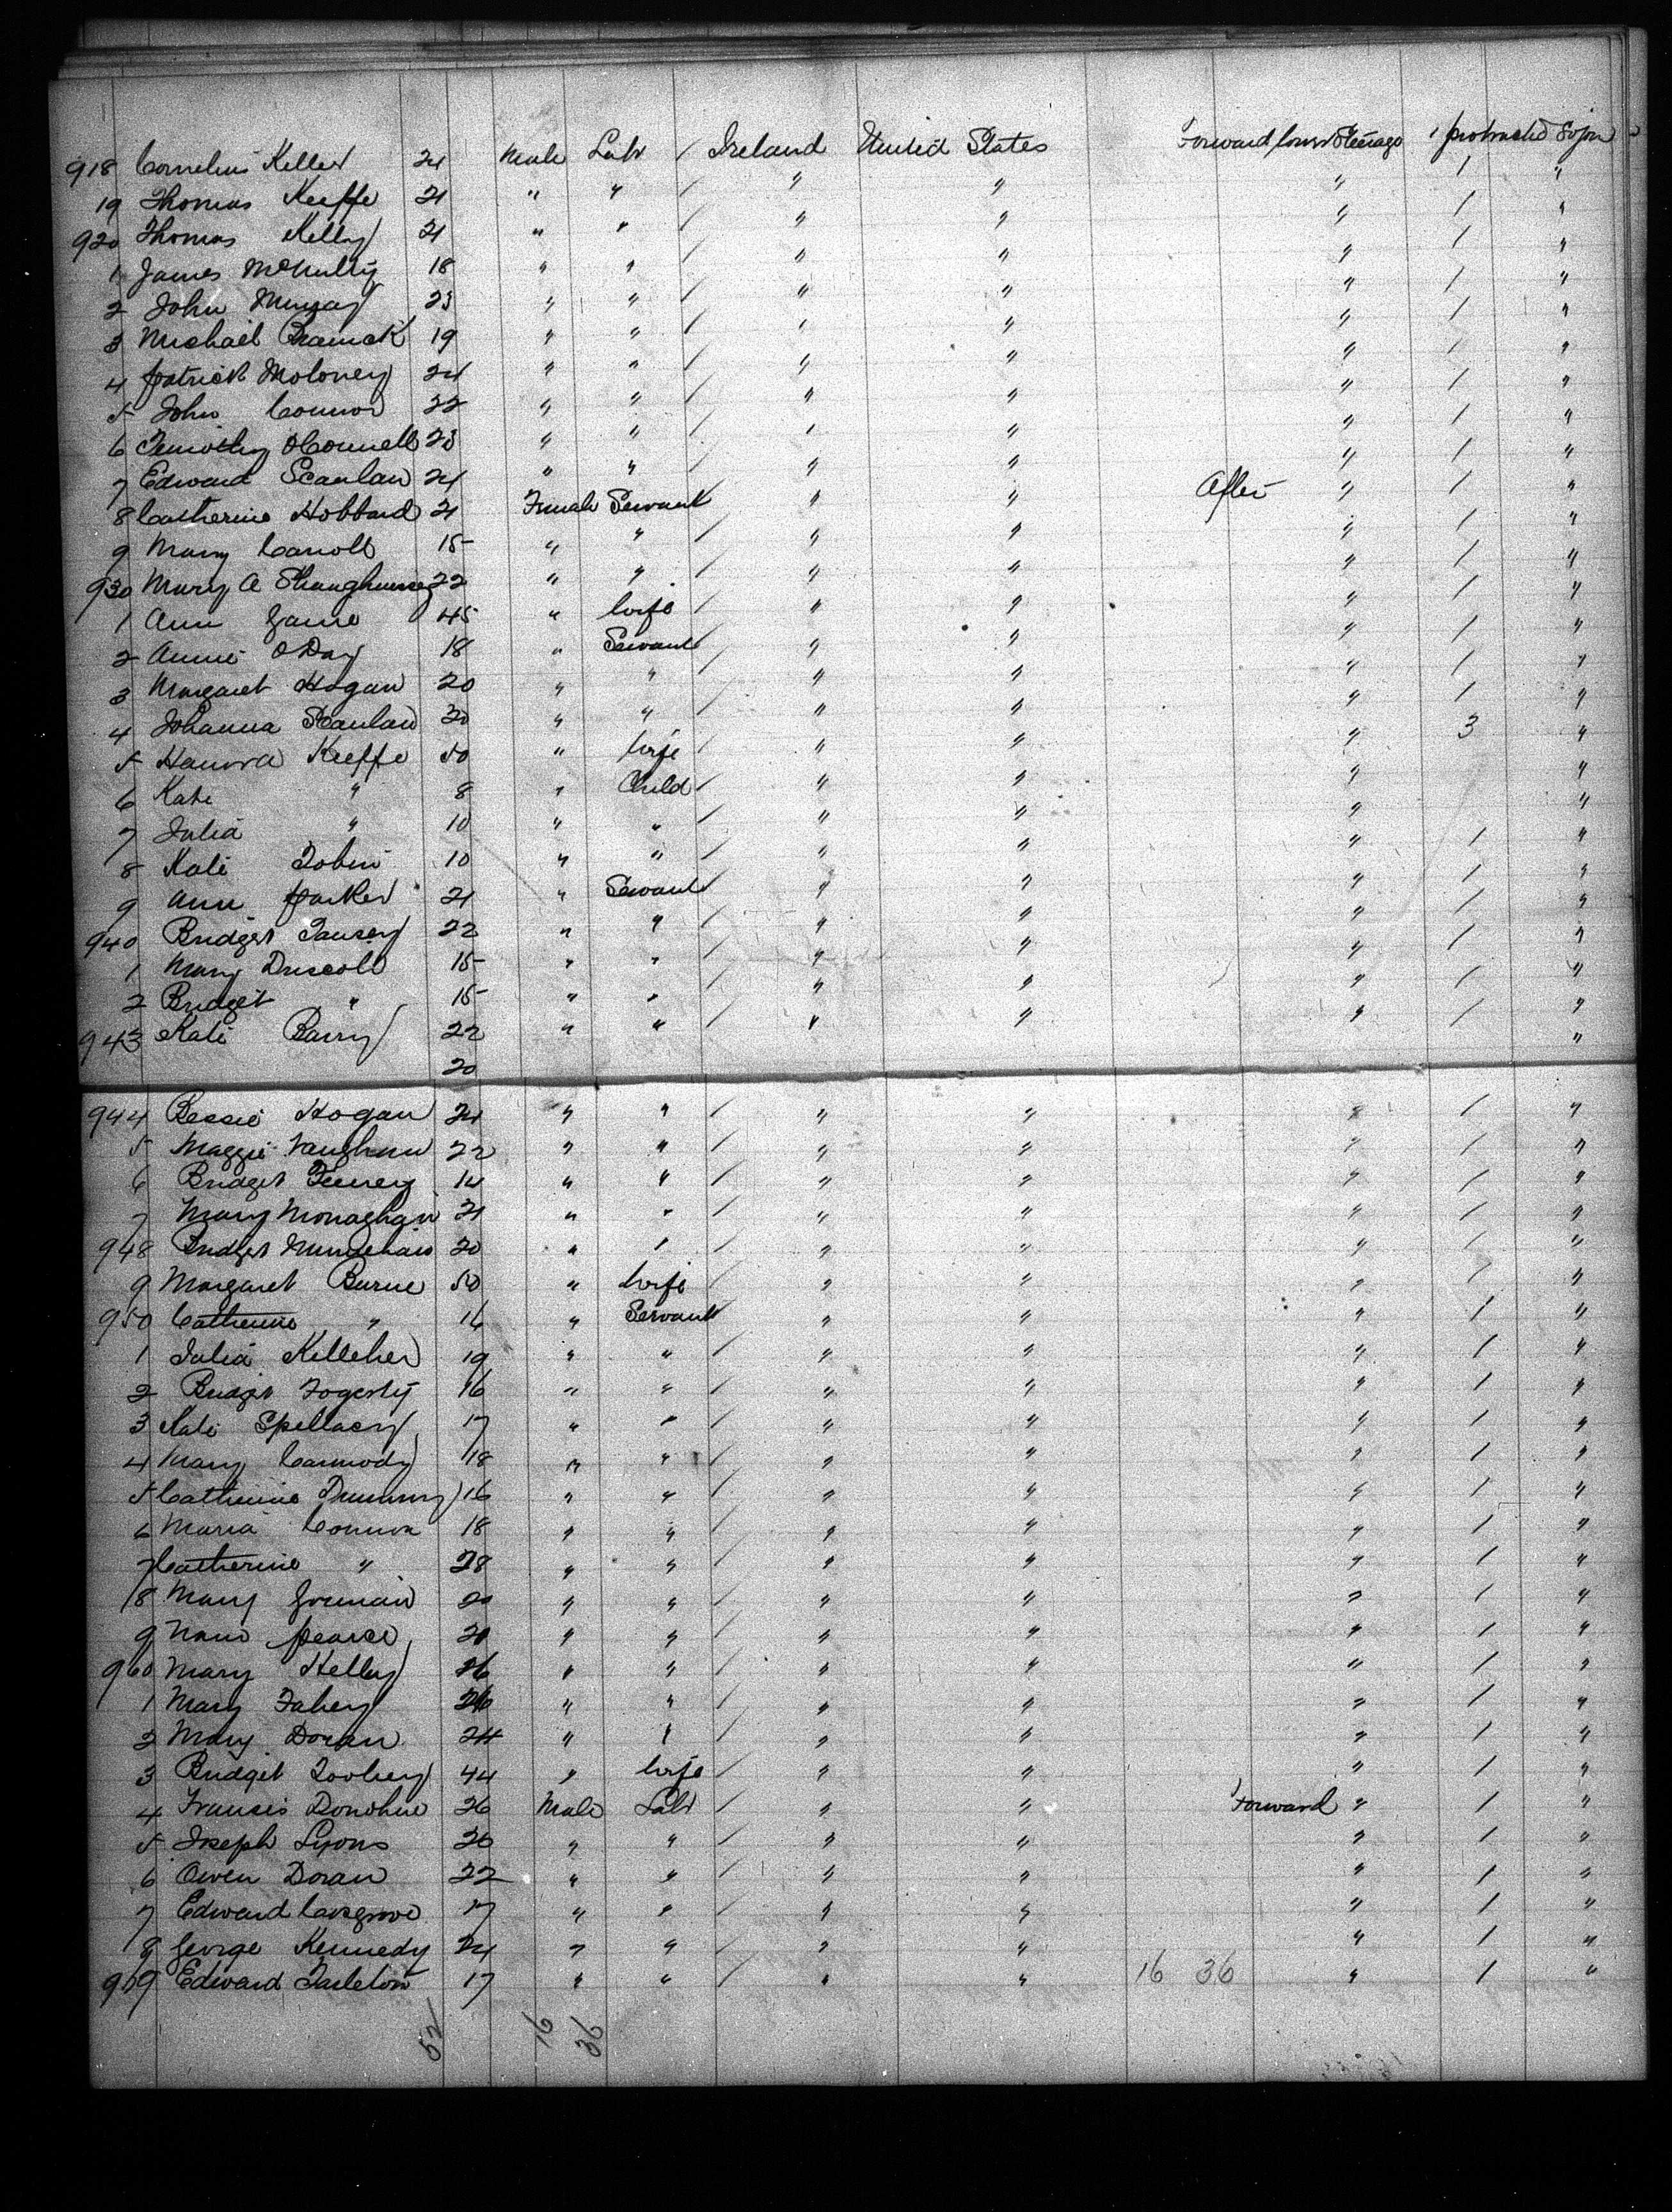 918 Cornelius Keller 24 Male Labr / Ireland United States Forward lower Steerage 1 protracted Sojon
19 Thomas Keeffe 21 " " / " " " 1 "
920 Thomas Kelly 21 " " / " " " 1 "
1 James McNulty 18 " " / " " " 1 "
2 John Murray 23 " " / " " " 1 "
3 Michael 19 " " / " " " 1 "
4 Patrick Moloney 24 " " / " " " 1 "
5 John Connor 22 " " / " " " 1 "
6 Timothy OConnell 23 " " / " " " 1 "
7 Edward Scanlan 24 " " / " " " 1 "
8 Catherine Hobbard 21 Female Servant / " " After " 1 "
9 Mary Carroll 15 " " / " " " 1 "
930 Mary A Shaughnessy 22 " " / " " " 1 "
1 Ann 45 " Wife / " " " 1 "
2 Annie ODay 18 " Servant / " " " 1 "
3 Margaret Hogan 20 " " / " " " 1 "
4 Johanna Scanlan 20 " " / " " " 1 "
5 Hanora Keeffe 50 " Wife / " " " 3 "
6 Kate " 8 " Child / " " " "
7 Julia " 10 " " / " " " "
8 Kate Tobin 10 " " / " " " 1 "
9 Ann Parker 21 " Servant / " " " 1 "
940 Bridget Tansey 22 " " / " " " 1 "
1 Mary Driscoll 15 " " / " " " 1 "
2 Bridget " 15 " " / " " " 1 "
943 Kate Barry 22 " " / " " " 1 "
20 "
944 Bessie Hogan 24 " " / " " " 1 "
5 Maggie Vaughan 22 " " / " " " 1 "
6 Bridget Feeney 14 " " / " " " 1 "
7 Mary Monaghan 21 " " / " " " 1 "
948 Bridget 20 " " / " " " 1 "
9 Margaret Burne 50 " Wife / " " " 1 "
950 Catherine " 16 " Servant / " " " 1 "
1 Julia Killeher 19 " " / " " " 1 "
2 Bridget Fogerty 16 " " / " " " 1 "
3 Kate Spellacy 17 " " / " " " 1 "
4 Mary Carmody 18 " " / " " " 1 "
5 Catherine 16 " " / " " " 1 "
6 Maria Connor 18 " " / " " " 1 "
7 Catherine " 28 " " / " " " 1 "
8 Mary Gorman 20 " " / " " " 1 "
9 Nano Pearce 20 " " / " " " 1 "
960 Mary Kelly 26 " " / " " " 1 "
1 Mary Fahey 26 " " / " " " 1 "
2 Mary Doran 24 " " / " " " 1 "
3 Bridget 44 " Wife / " " " 1 "
4 Francis Donohue 26 Male Labr / " " Forward " 1 "
5 Joseph Lyons 26 " " / " " " 1 "
6 Owen Doran 22 " " / " " " 1 "
7 Edward Cosgrove 17 " " / " " " 1 "
8 George Kennedy 24 " " / " " " 1 "
969 Edward Tarleton 17 " " / " " 16 36 " 1 "
52 16 36